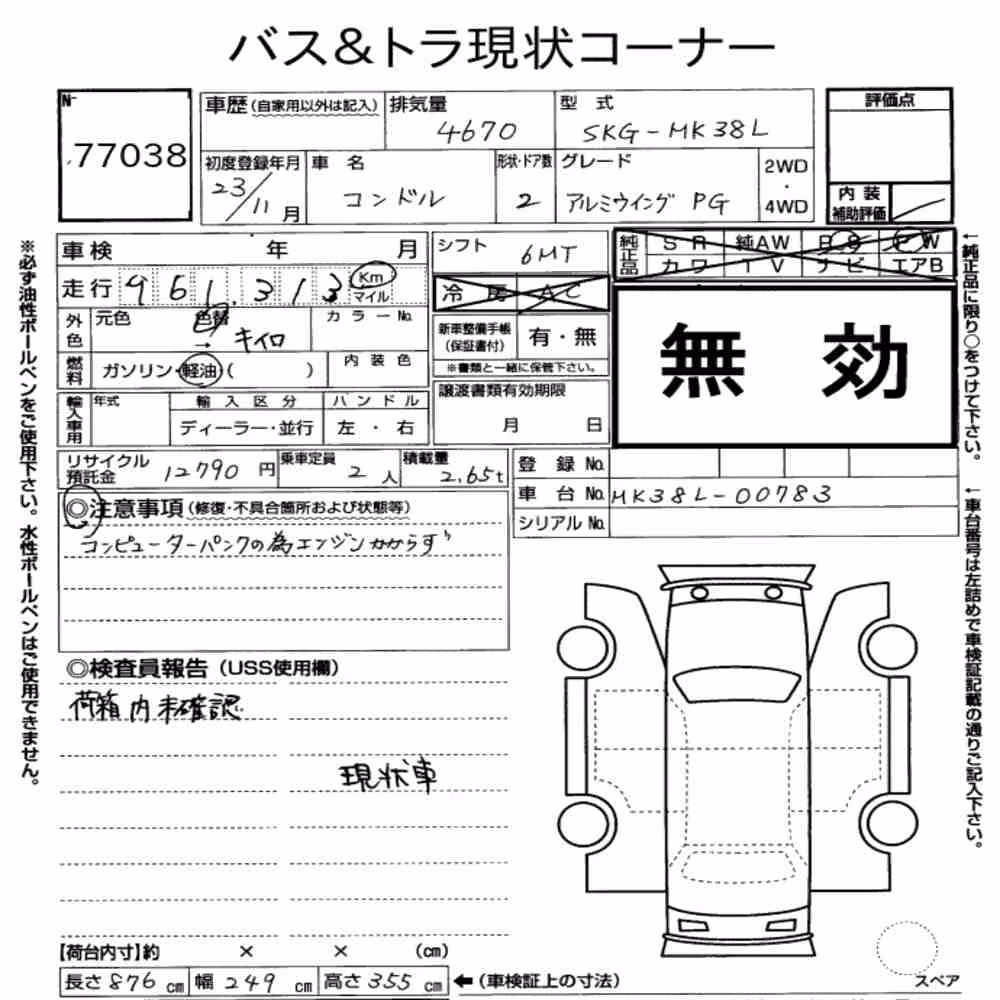 バス&トラ現状コーナー
N-
77038
車歴(自家用以外は記入)
排気量
4670
型 式
SKG-MK38L
初度登録年月
23/11月
車 名
コンドル
形状・ドア数
2
グレード
アルミウイング PG
2WD
・
4WD
評価点
内 装
補助評価
車検 年 月
シフト
6MT
純正品
SR
純AW
PS
PW
カワ
TV
ナビ
エアB
走行 961,313 Km
マイル
冷房 AC
外色
元色
色替
→ キイロ
カラーNo.
新車整備手帳
(保証書付)
有・無
※書類と一緒に保管下さい。
無 効
燃料
ガソリン・軽油( )
内 装 色
輸入車用
年式
輸 入 区 分
ディーラー・並行
ハ ン ド ル
左 ・ 右
譲渡書類有効期限
月 日
リサイクル
預託金
12790 円
乗車定員
2 人
積載量
2.65t
登 録 No.
車 台 No. MK38L-00783
シリアルNo.
◎注意事項(修復・不具合箇所および状態等)
コンピューターパンクの為エンジンかからず
◎検査員報告(USS使用欄)
荷箱内未確認
現状車
【荷台内寸】約 × × (cm)
長さ 876 cm 幅 249 cm 高さ 355 cm ←(車検証上の寸法)
スペア
※必ず油性ボールペンをご使用下さい。水性ボールペンはご使用できません。
←純正品に限り○をつけて下さい。
←車台番号は左詰めで車検証記載の通りご記入下さい。